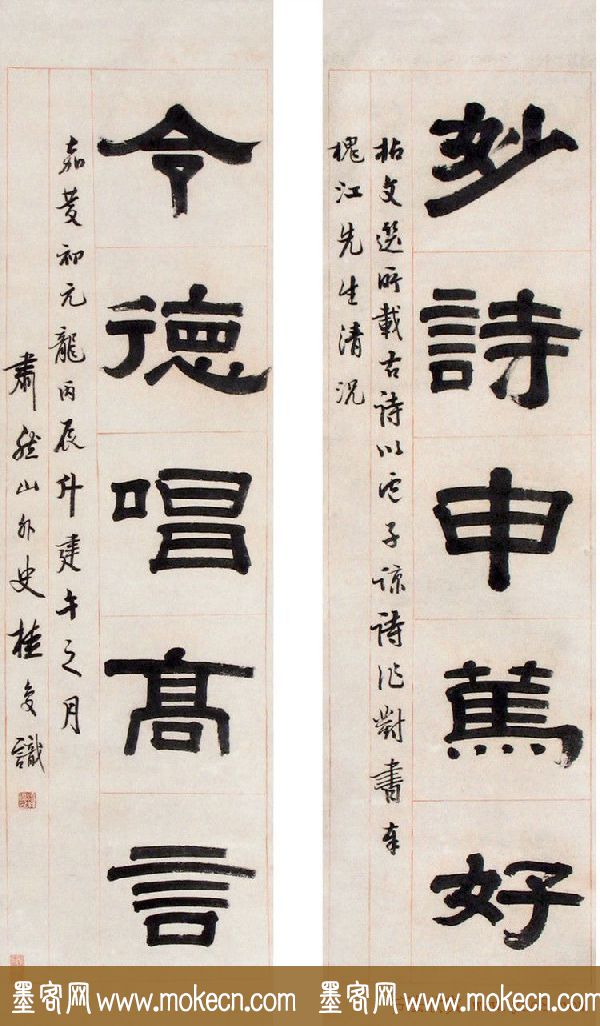 妙詩申篤好
拈文選所載古詩以盧子諒詩作對書奉
槐江先生清況
令德唱高言
嘉慶初元龍丙辰斗建午之月
肅然山外史桂复識
墨客网 www.mokecn.com 墨客网 www.mokecn.com